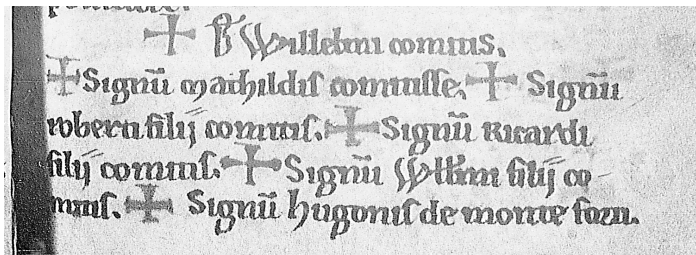 ✝ Willelmi comitis.
✝ Signū Mathildis comitisse. ✝ Signū
roberti filij comitis. ✝ Signū Ricardi
filij comitis. ✝ Signū Willmi filij co-
mitis. ✝ Signū hugonis de monte forti.